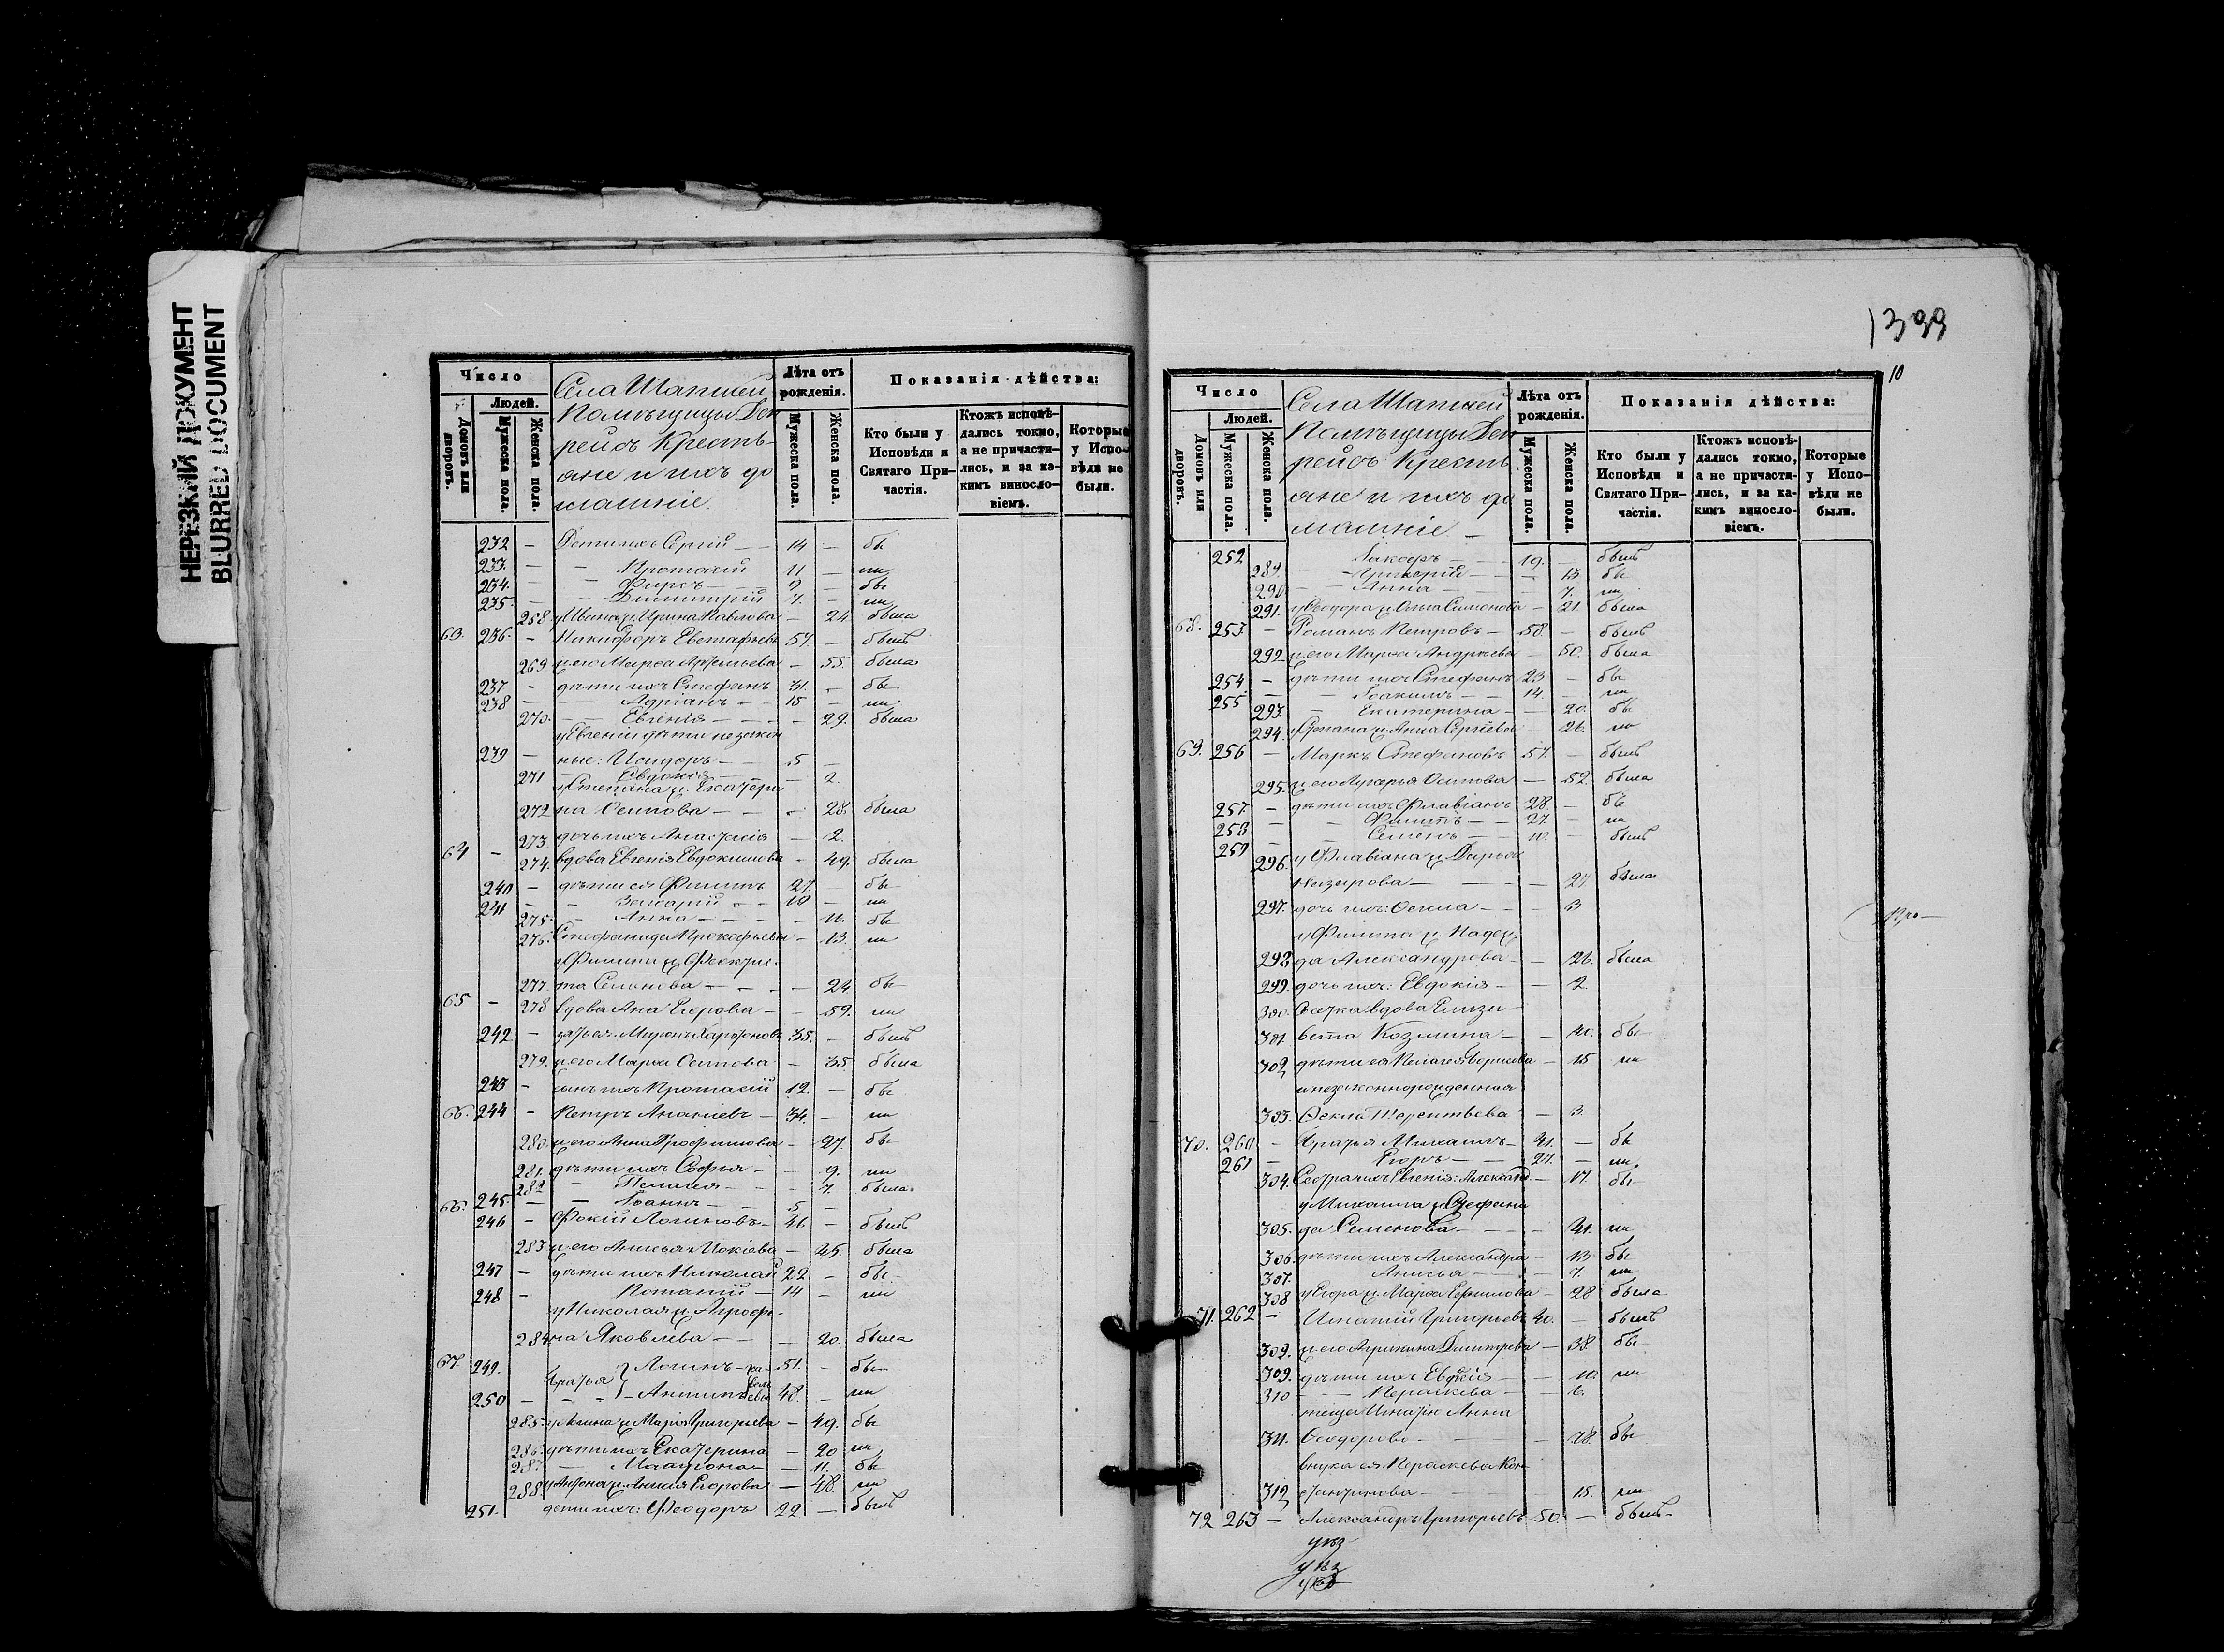 НЕРЕЗКИЙ ДОКУМЕНТ
BLURRED DOCUMENT
Число
Людей.
Домовъ или дворовъ.
Мужеска пола.
Женска пола.
Села Шапшей
Помѣщицы Ден
рейсъ Кресть-
яне и ихъ до
машніе.
Лѣта отъ рожденія.
Мужеска пола.
Женска пола.
Показанія дѣйства:
Кто были у Исповѣди и Святаго При-частія.
Ктожъ исповѣ-дались токмо, а не причасти-лись, и за ка-кимъ винословіемъ.
Которые у Испо-вѣди не были.
232 - Дети ихъ Сергій - 14 - бы
233. - - Протасій 11 - ли
234. - - Фирсъ - 9 - бы
235. - - Димитрій 7. - ли
268. у Ивана ж. Ирина Павлова - 24 была
63. 236. - Никифоръ Евстафьевъ 57. - былъ
269 ж. его Марѳа - 55. была
237 - дѣти ихъ Стефанъ 31. - бы
238 - - Адріанъ - 15 - ли
270. - Евгенія - - 29. была
у Евгеніи дѣти незакон
239 - ные: Исидоръ - 5 -
271 - Евдокія - - 2.
у Степана ж. Екатери
272 на Осипова - - 28. была
273. дочь ихъ Анастасія - 2.
64 - 274. вдова Евгенія Евдокимова - 49. была
240 - дѣти ея Филипъ 27. - бы
241 - - Захарій - 10 - ли
275. - Анна - - 11. бы
276. Стефанида Прокофьева - 13 ли
у Филипа ж. Феокти-
277. та Семонова - - 24 бы
65 - 278 вдова Ана Егорова - - 59. ли
242 - зятья Миронъ Харитоновъ 35. - былъ
279. ж. его Марѳа Осипова - 35. была
243 - сынъ ихъ Протасій 12. - бы
66. 244 - Петръ Ананіевъ - 34. - ли
280. ж. его Анна Трофимова - 27. бы
281. дѣти ихъ Софья - - 9. ли
282 - Пелагея - - 7. была
245. - - Іоаннъ - 5 -
66. 246 - Фокій Логиновъ - 46 - былъ
283 ж. его Анисья Мокіева - 45. была
247 - дѣти ихъ Николай 22 - бы
248 - Потапій - 14 - ли
у Николая ж. Агрофе-
284 на Яковлева - - 20. была
67. 249. Братья } Логинъ - 51. - бы
250 - - - Антипъ 48. - ли
285. у Логина ж. Марія Григорьева - 49. бы
286. дѣти ихъ Екатерина - 20 ли
287. - - 11. бы
288 у Антона ж. Анисія Егорова - 48. ли
251. дети ихъ: Феодоръ 22 - былъ
1399
10
Число
Людей.
Домовъ или дворовъ.
Мужеска пола.
Женска пола.
Села Шапшей
Помѣщицы Ден
рейсъ Кресть
яне и ихъ до
машніе -
Лѣта отъ рожденія.
Мужеска пола.
Женска пола.
Показанія дѣйства:
Кто были у Исповѣди и Святаго При-частія.
Ктожъ исповѣ-дались токмо, а не причасти-лись, и за ка-кимъ винословіемъ.
Которые у Испо-вѣди не были.
252 - 19. - былъ
289. - - 13 бы
290 - Анна - - 7. ли
291. у Ѳеодора ж. Ольга Симонова - 21. была
68. 253. - Романъ Петровъ - 58. - былъ
292 ж. его Марѳа Андреева - 50. была
254. - дѣти ихъ Стефанъ 23 - бы
255 - - Іоакимъ - 14. - ли
293. - Екатерина - - 20. бы
294. у Степана ж. Анна Сергѣева - 26. ли
69. 256 - Маркъ Стефановъ 57. - былъ
295. ж. его Лукерья Осипова - 52. была
257. - дѣти ихъ Флавіанъ 28 - бы
258 - - Филипъ - 27. - ли
259 - - Семенъ - 10. - былъ
296. у Флавіана ж. Дарья
Назарова - - 27. была
297. дочь ихъ: Ѳекла - - 3
у Филипа ж. Надеж
298 да Александрова - - 26. была
299. дочь ихъ: Евдокія - - 2.
300. вдова Елиза-
301. вета Козмина - - 40. бы
302 дѣти ея Пелагея - 15 ли
и незаконнорожденная
303. Ѳекла Терентьева - 3.
70. 260 - Братья Михаилъ - 41. - бы
261 - Егоръ - 27. - ли
304. Сестра ихъ Евгенія: Александ. - 17. бы
у Михаила ж. Стефани
305. да Семенова - - 41. ли
306. дѣти ихъ Александра - 13. бы
307. Анисья - - 7. ли
308 у Егора ж. Марѳа - 28 была
71. 262 - Игнатій Григорьевъ 40. - былъ
309. ж. его Агрипина Дмитрева - 38. бы
309. дѣти ихъ - 10. ли
310 - - Параскева - - 6.
теща Игнатія Анна
311. Ѳеодорова - - 78. бы
внука ея Параскева Кон
312 стантинова - - 15. ли
72 263 - Александръ Григорьевъ 50. - былъ
уѣз
уѣз